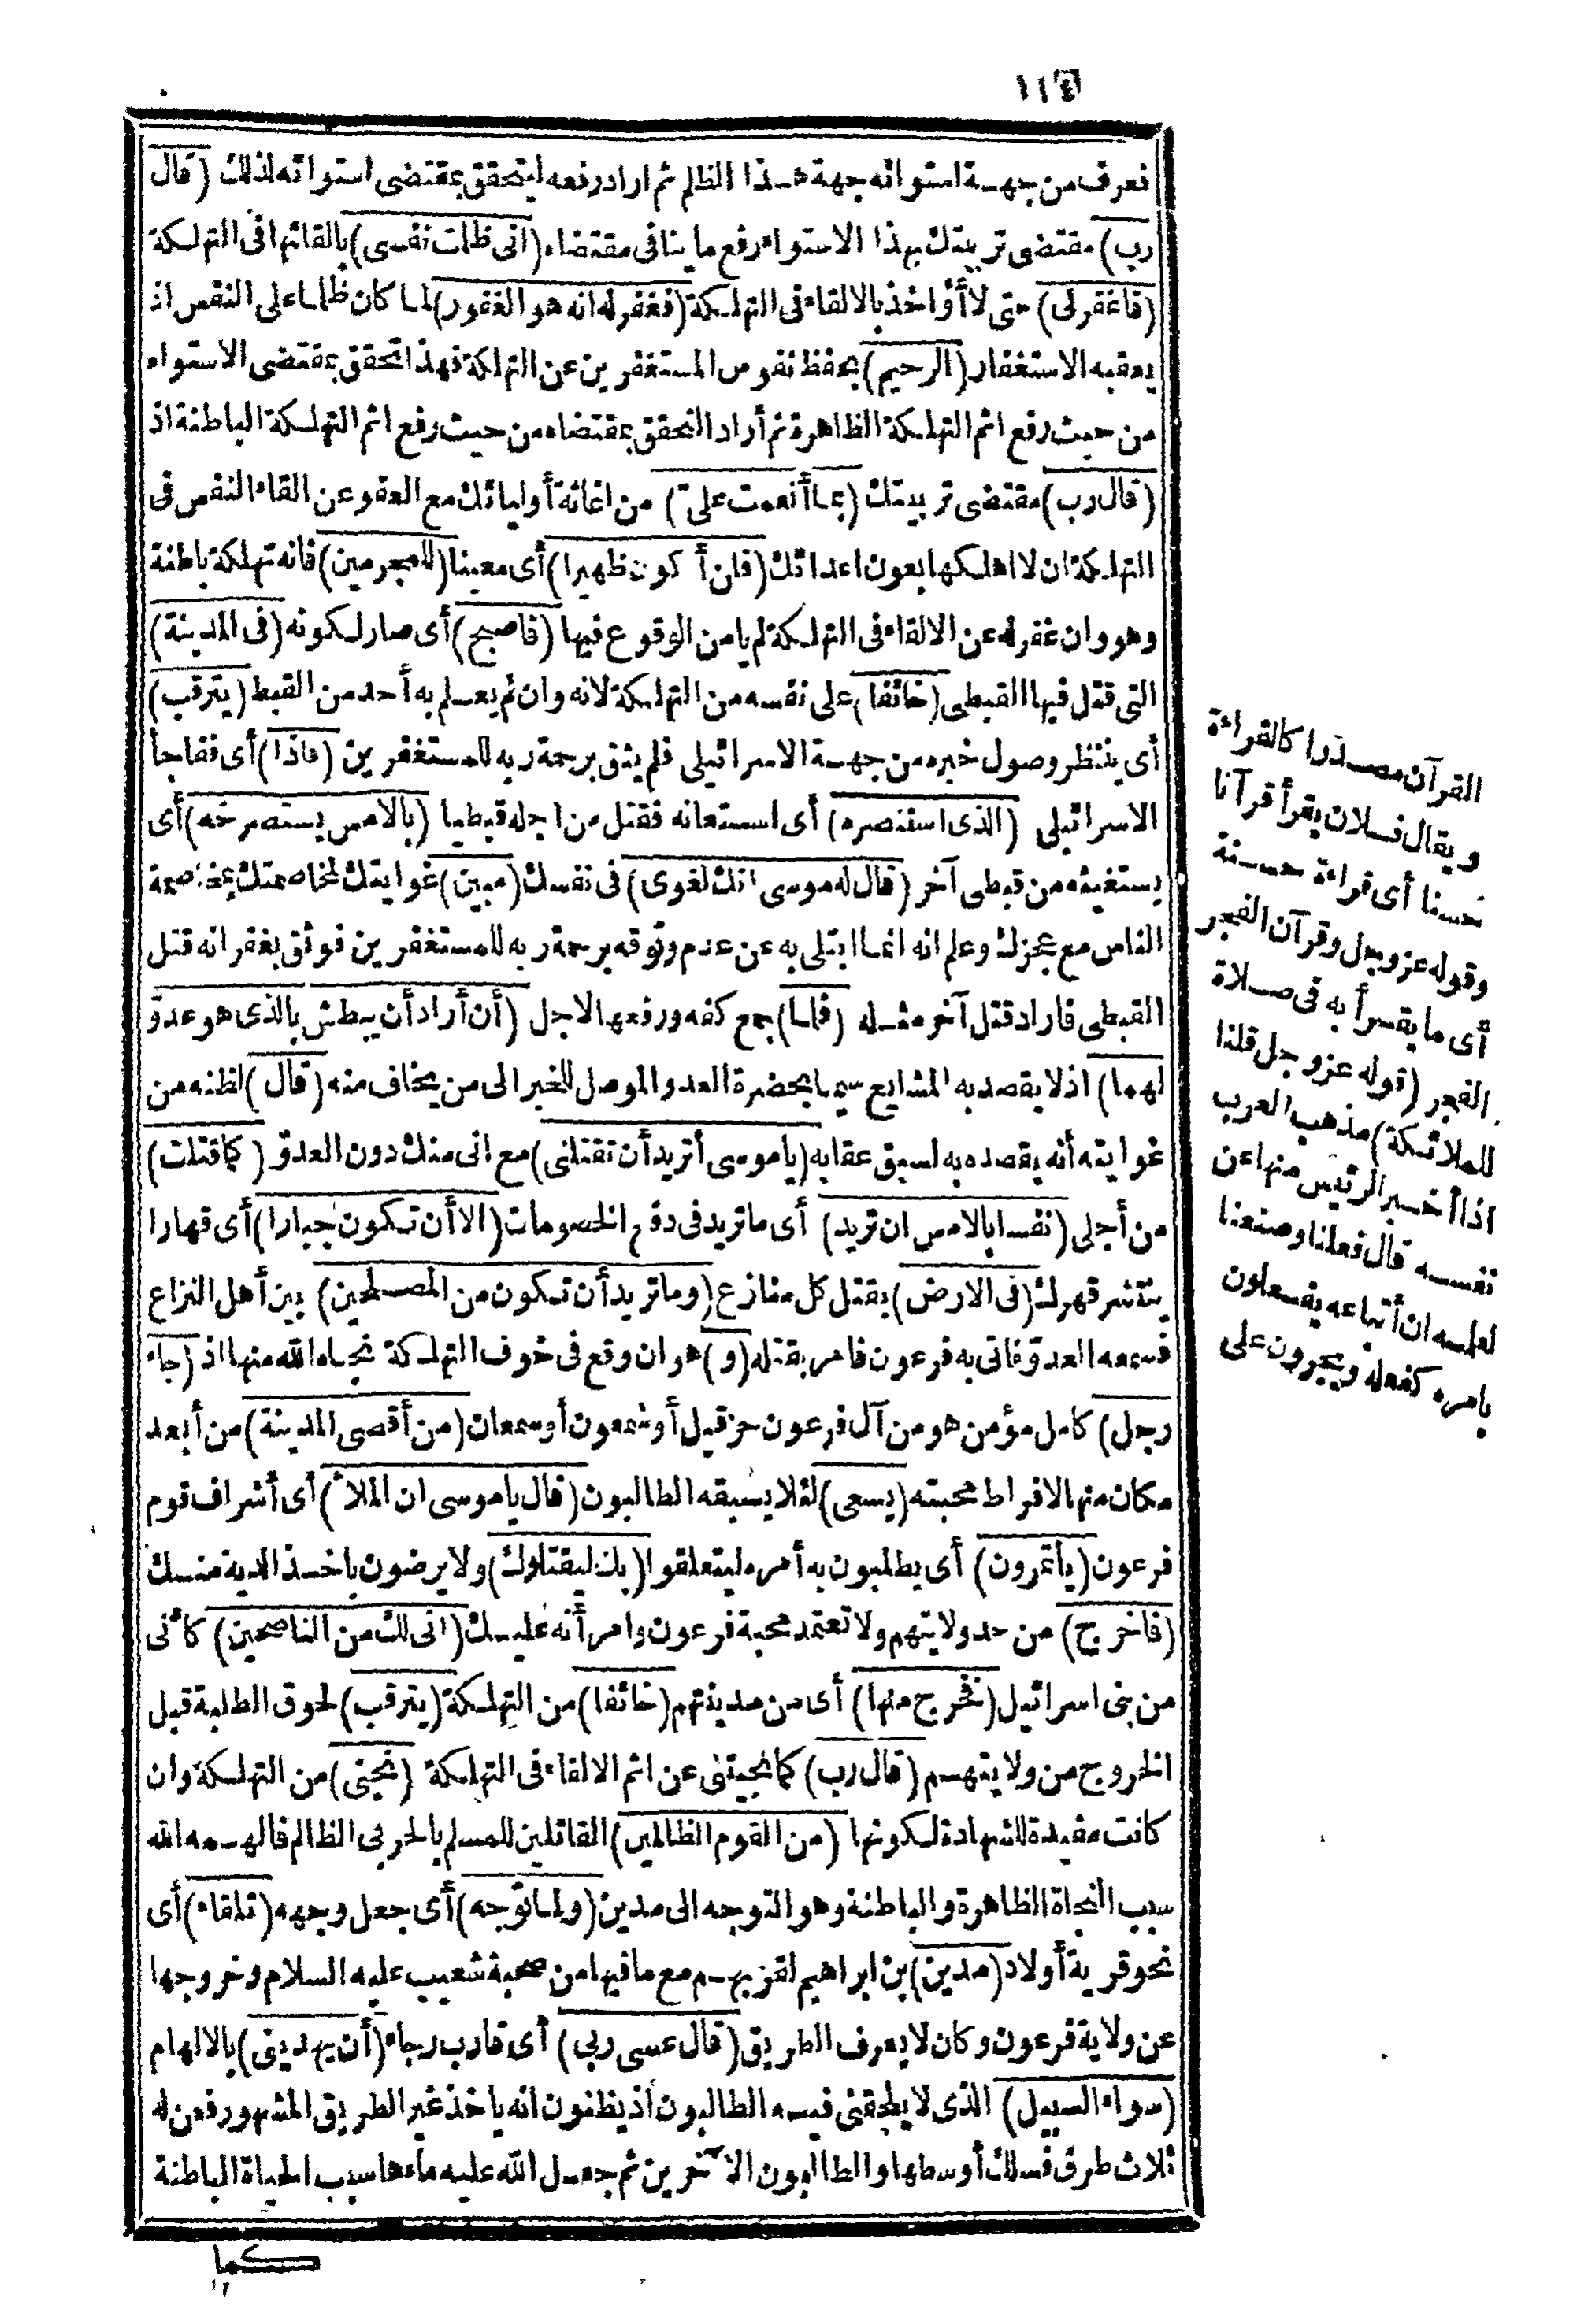 ١١٤
فعرف من جهة استوائه جهة هذا الظلم ثم اراد رفعه ليتحقق بمقتضى استوائه لذلك (قال
رب) مقتضى تربيتك بهذا الاستواء رفع ما ينافى مقتضاه (انى ظلمت نفسى) بالقائها فى التهلكة
(فاغفر لى) حتى لا أؤاخذ بالالقاء فى التهلكة (فغفر له انه هو الغفور) لما كان ظلما على النفس اذ
يعقبه الاستغفار (الرحيم) بحفظ نفوس المستغفرين عن التهلكة فهذا تحقق بمقتضى الاستواء
من حيث رفع اثم التهلكة الظاهرة ثم أراد التحقق بمقتضاه من حيث رفع اثم التهلكة الباطنة اذ
(قال رب) مقتضى تربيتك (بما أنعمت علىّ) من اغاثة أوليائك مع العفو عن القاء النفس فى
التهلكة ان لا اهلكها بعون اعدائك (فلن أكون ظهيرا) أى معينا (للمجرمين) فانه تهلكة باطنة
وهو وان غفر له عن الالقاء فى التهلكة لم يامن الوقوع فيها (فاصبح) أى صار لكونه (فى المدينة)
التى قتل فيها القبطى (خائفا) على نفسه من التهلكة لانه وان لم يعلم به أحد من القبط (يترقب)
أى ينتظر وصول خبره من جهة الاسرائيلى فلم يثق برحمة ربه للمستغفرين (فاذا) أى ففاجأ
الاسرائيلى (الذى استنصره) أى استعانه فقتل من اجله قبطيا (بالامس يستصرخه) أى
يستغيثه من قبطى آخر (قال له موسى انك لغوى) فى نفسك (مبين) غوايتك لمخاصمتك بمخاصمة
الناس مع عجزك وعلم انه انما ابتلى به عن عدم وثوقه برحمة ربه للمستغفرين فوثق بغفرانه قتل
القبطى فاراد قتل آخر مثله (فلما) جمع كفه ورفعها لاجل (أن أراد أن يبطش بالذى هو عدوّ
لهما) اذ لا يقصد به المشايع سيما بحضرة العدو الموصل للخبر الى من يخاف منه (قال) لظنه من
غوايته أنه يقصده به لسبق عقابه (ياموسى أتريد أن تقتلنى) مع انى منك دون العدوّ (كما قتلت)
من أجلى (نفسا بالامس ان تريد) أى ما تريد فى دفع الخصومات (الا أن تكون جبارا) أى قهارا
ينتشر قهرك (فى الارض) بقتل كل منازع (وما تريد أن تكون من المصلحين) بين أهل النزاع
فسمعه العدوّ فاتى به فرعون فامر بقتله (و) هو ان وقع فى خوف التهلكة نجاه الله منها اذ (جاء
رجل) كامل مؤمن هو من آل فرعون حزقيل أو شمعون أو سمعان (من أقصى المدينة) من أبعد
مكان منها لافراط محبته (يسعى) لئلا يسبقه الطالبون (قال ياموسى ان الملأ) أى أشراف قوم
فرعون (يأتمرون) أى يطلبون به أمره ليتعلقوا (بك ليقتلوك) ولا يرضون باخذ الدية منك
(فاخرج) من حد ولايتهم ولا تعتمد محبة فرعون وامرأته عليك (انى لك من الناصحين) كأنى
من بنى اسرائيل (فخرج منها) أى من مدينتهم (خائفا) من التهلكة (يترقب) لحوق الطلبة قبل
الخروج من ولايتهم (قال رب) كما نجيتنى عن اثم الالقاء فى التهلكة (نجنى) من التهلكة وان
كانت مفيدة للشهادة لكونها (من القوم الظالمين) القاتلين للمسلم بالحربى الظالم فالهمه الله
سبب النجاة الظاهرة والباطنة وهو التوجه الى مدين (ولما توّجه) أى جعل وجهه (تلقاء) أى
نحو قرية أولاد (مدين) بن ابراهيم لقربهم مع ما فيها من صحبة شعيب عليه السلام وخروجها
عن ولاية فرعون وكان لا يعرف الطريق (قال عسى ربى) أى قارب رجاء (أن يهدينى) بالالهام
(سواء السبيل) الذى لا يلحقنى فيه الطالبون اذ يظنون انه ياخذ غير الطريق المشهور فعن له
ثلاث طرق فسلك أوسطها والطالبون الآخرين ثم جعل الله عليه ماءها سبب الحياة الباطنة
كما
القرآن مصدرا كالقراءة
ويقال فلان يقرأ قرآنا
حسنا أى قراءة حسنة
وقوله عز وجل وقرآن الفجر
أى ما يقرأ به فى صلاة
الفجر (قوله عز وجل قلنا
للملائكة) مذهب العرب
اذا أخبر الرئيس منها عن
نفسه قال فعلنا وصنعنا
لعلمه ان أتباعه يفعلون
بامره كفعله ويجرون على